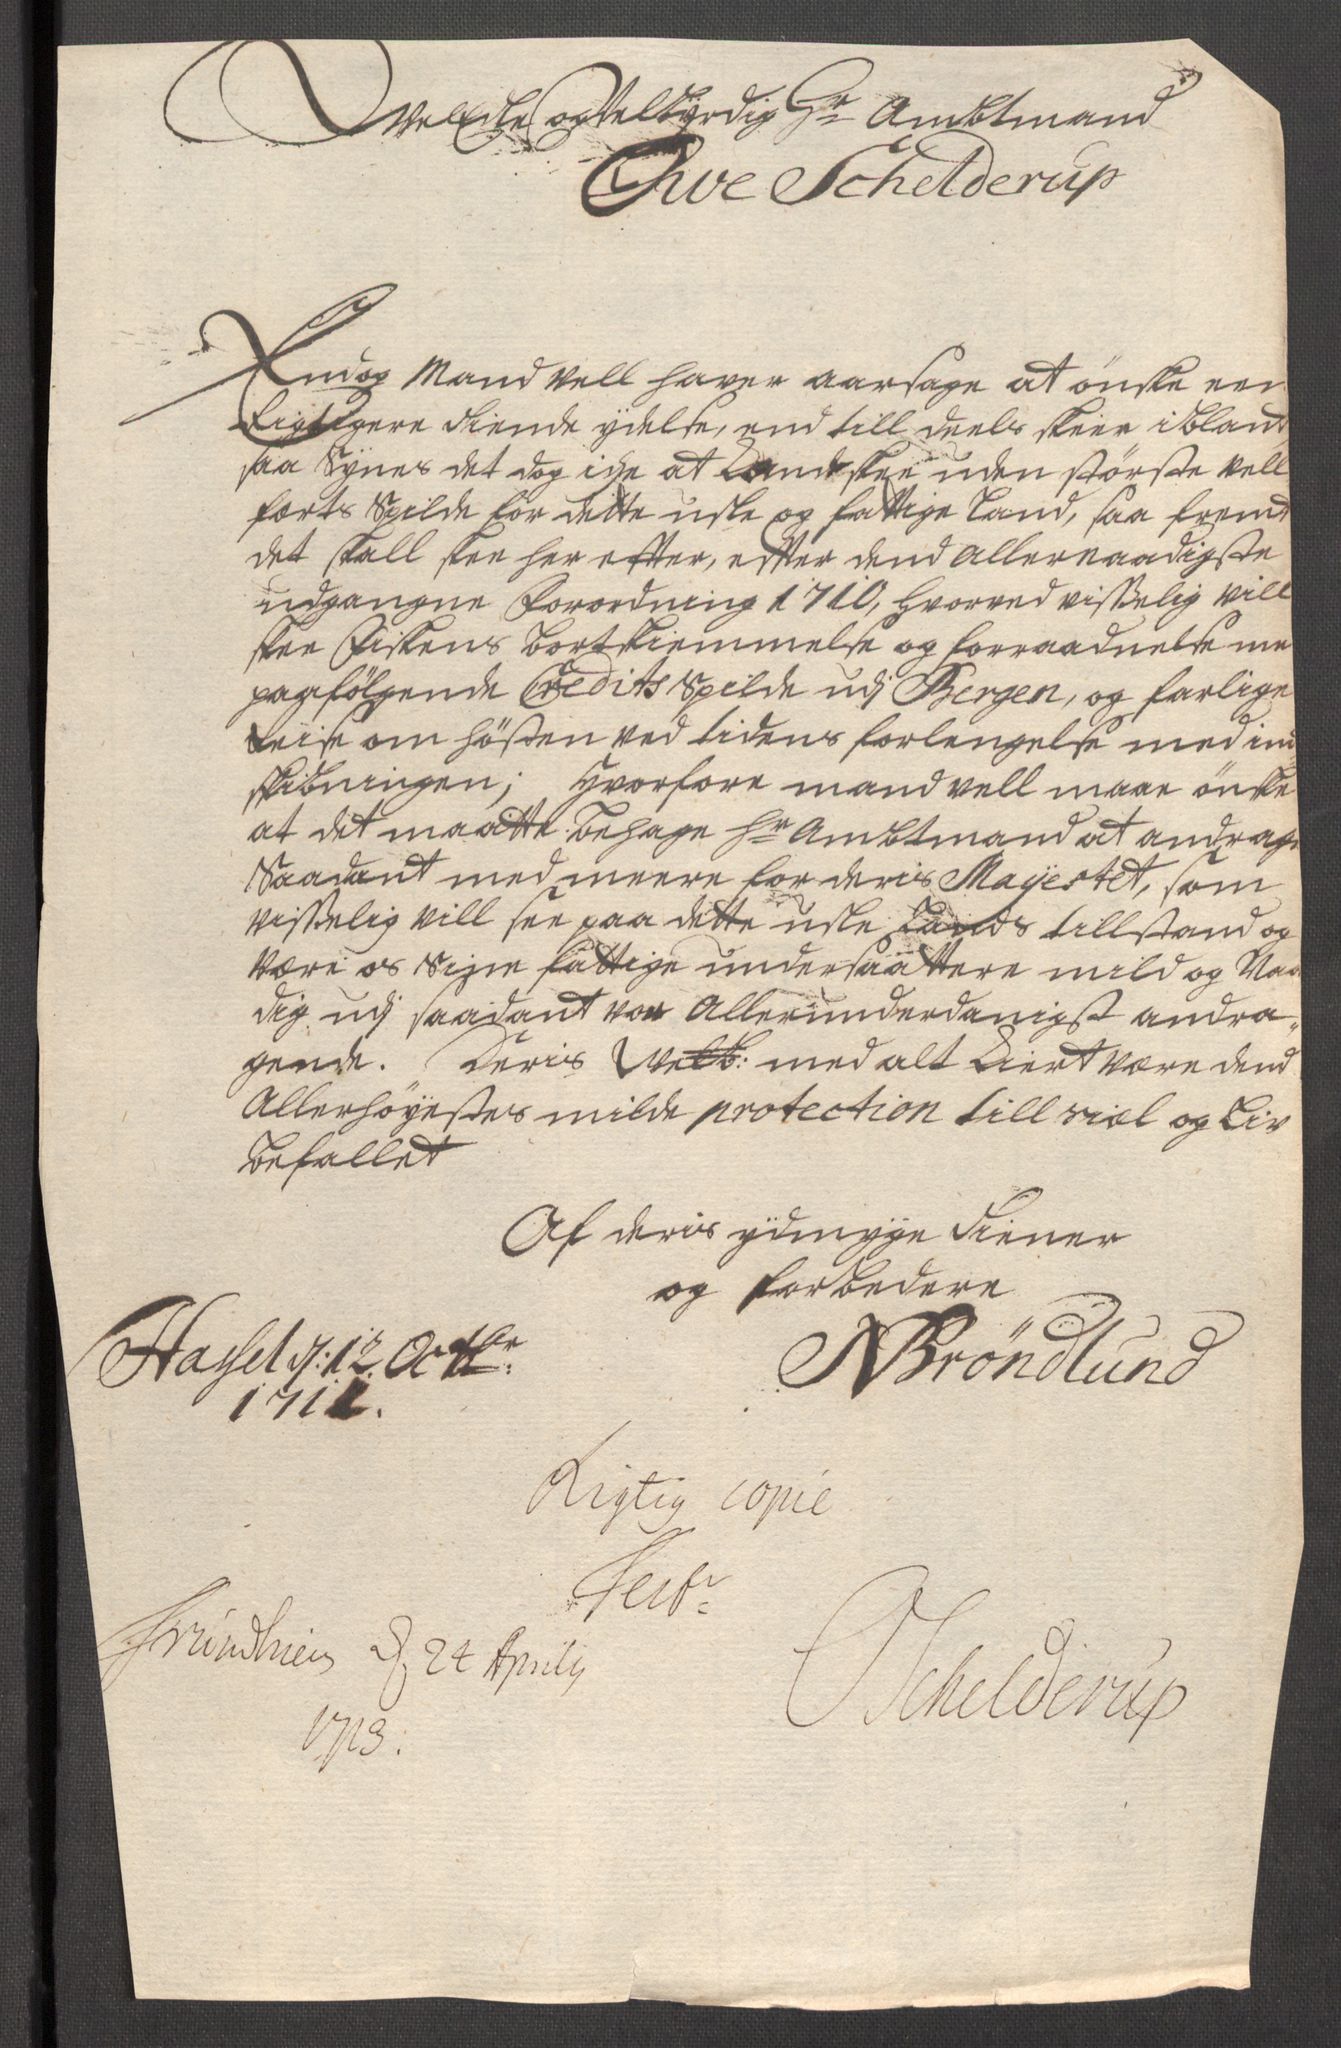 WelEdle og Velbyrdig Hr Ambtmand
Owe Schelderup
Endog Mand vell haver aarsage at önske een
Rigtigere Tiende ydelse, end till deels skeer iblandt
saa Synes det dog iche at Kand skee uden störste vell
færts Spilde for dette usle og fattige Land, saa fremt
det skall skee her efter, efter dend Allernaadigste
udgangne Forordning 1710, hvorved visselig vill
skee Fiskens bortskiemmelse og forraadnelse me
paafölgende Credits Spilde udj Bergen, og farlige
Reise om hösten ved tidens forlengelse med ind
skibningen; Hvorfore mand vell maae önske
at det maatte behage Hr Ambtmand at andrage
Saadant med meere for deris Mayestet, som
visselig vill see paa dette usle Lands tillstand og
være os Sine fattige undersaattere mild og Naa
dig udj saadant vor Allerunderdanigst andra-
gende. Deris Welb: med alt Kiert være dend
Allerhöyestes milde protection till siæl og Liv
befallet
Af deris ydmyge tiener
og forbedere
Hassel d: 12 Octbr:
1711.
NBröndlund
Rigtig copie
Test:
Trundhiem d 24 Aprilis
1713.
OSchelderup